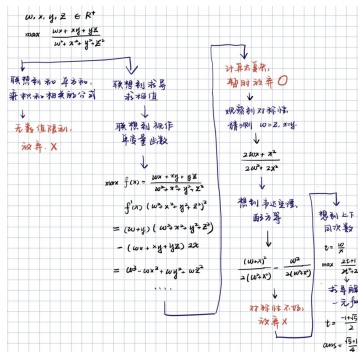 w, x, y, z ∈ R⁺
max (wx + xy + yz)/(w²+x²+y²+z²)
联想到和平方和、
乘积和相关的公式
无数值限制,
放弃. X
联想到求导
求极值
联想到视作
单变量函数
max f(x) = (wx + xy + yz)/(w²+x²+y²+z²)
f'(x) (w²+x²+y²+z²)²
= (w+y) (w²+x²+y²+z²)
- (wx + xy + yz) 2x
= w³ - wx² + wy² - wz²
....
计算太复杂,
暂时放弃 O
观察到对称性,
猜测 w=z, x=y
(2wx + x²)/(2w² + 2x²)
想到韦达定理,
配方等
(w+x)²/(2(w²+x²)) - w²/(2(w²+x²))
对称性不够,
放弃 X
想到上下
同次数
t = w/x
max (2t+1)/(2t²+2
求导解
一元
t = (-1+√5)/2
ans = (√5+1)/4